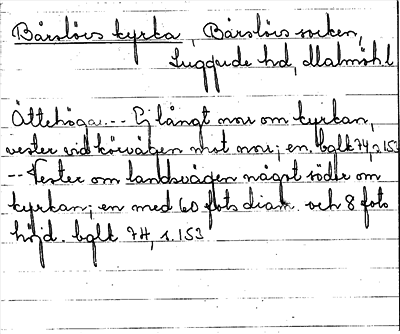 Bårslövs kyrka, Bårslövs socken,
Luggude hd, Malmöhl
Ättehögar --- Ej långt norr om kyrkan,
vester vid körvägen mot norr; en. bglk 74, s 153
-- Vester om landsvägen något söder om
kyrkan; en med 60 fots diam. och 8 fots
höjd. bglk 74, s. 153